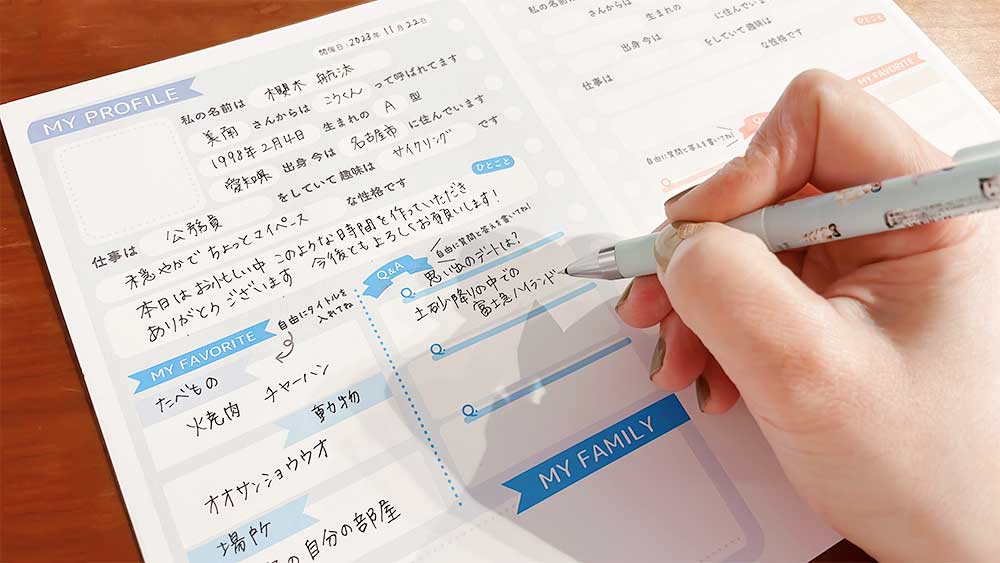 開催日:2023年11月22日
MY PROFILE
私の名前は 櫻木 航汰
美南 さんからは こうくん って呼ばれてます
1998年2月4日 生まれの A 型
愛知県 出身 今は 名古屋市 に住んでいます
仕事は 公務員 をしていて 趣味は サイクリング です
穏やかで ちょっとマイペース な性格です
ひとこと
本日はお忙しい中 このような時間を作っていただき
ありがとうございます 今後ともよろしくお願いします!
MY FAVORITE
自由にタイトルを
入れてね
たべもの
火焼肉 チャーハン
動物
オオサンショウウオ
場所
の自分の部屋
Q&A
自由に質問と答えを書いてね!
Q. 思い出のデートは?
土砂降りの中での
富士急ハイランド
Q.
Q.
MY FAMILY
私の名前
さんからは って呼ばれて
生まれの
出身 今は に住んでいま
仕事は をしていて 趣味は
な性格です
ひとこと
MY FAVORITE
自由に質問と答えを書いてね!
Q.